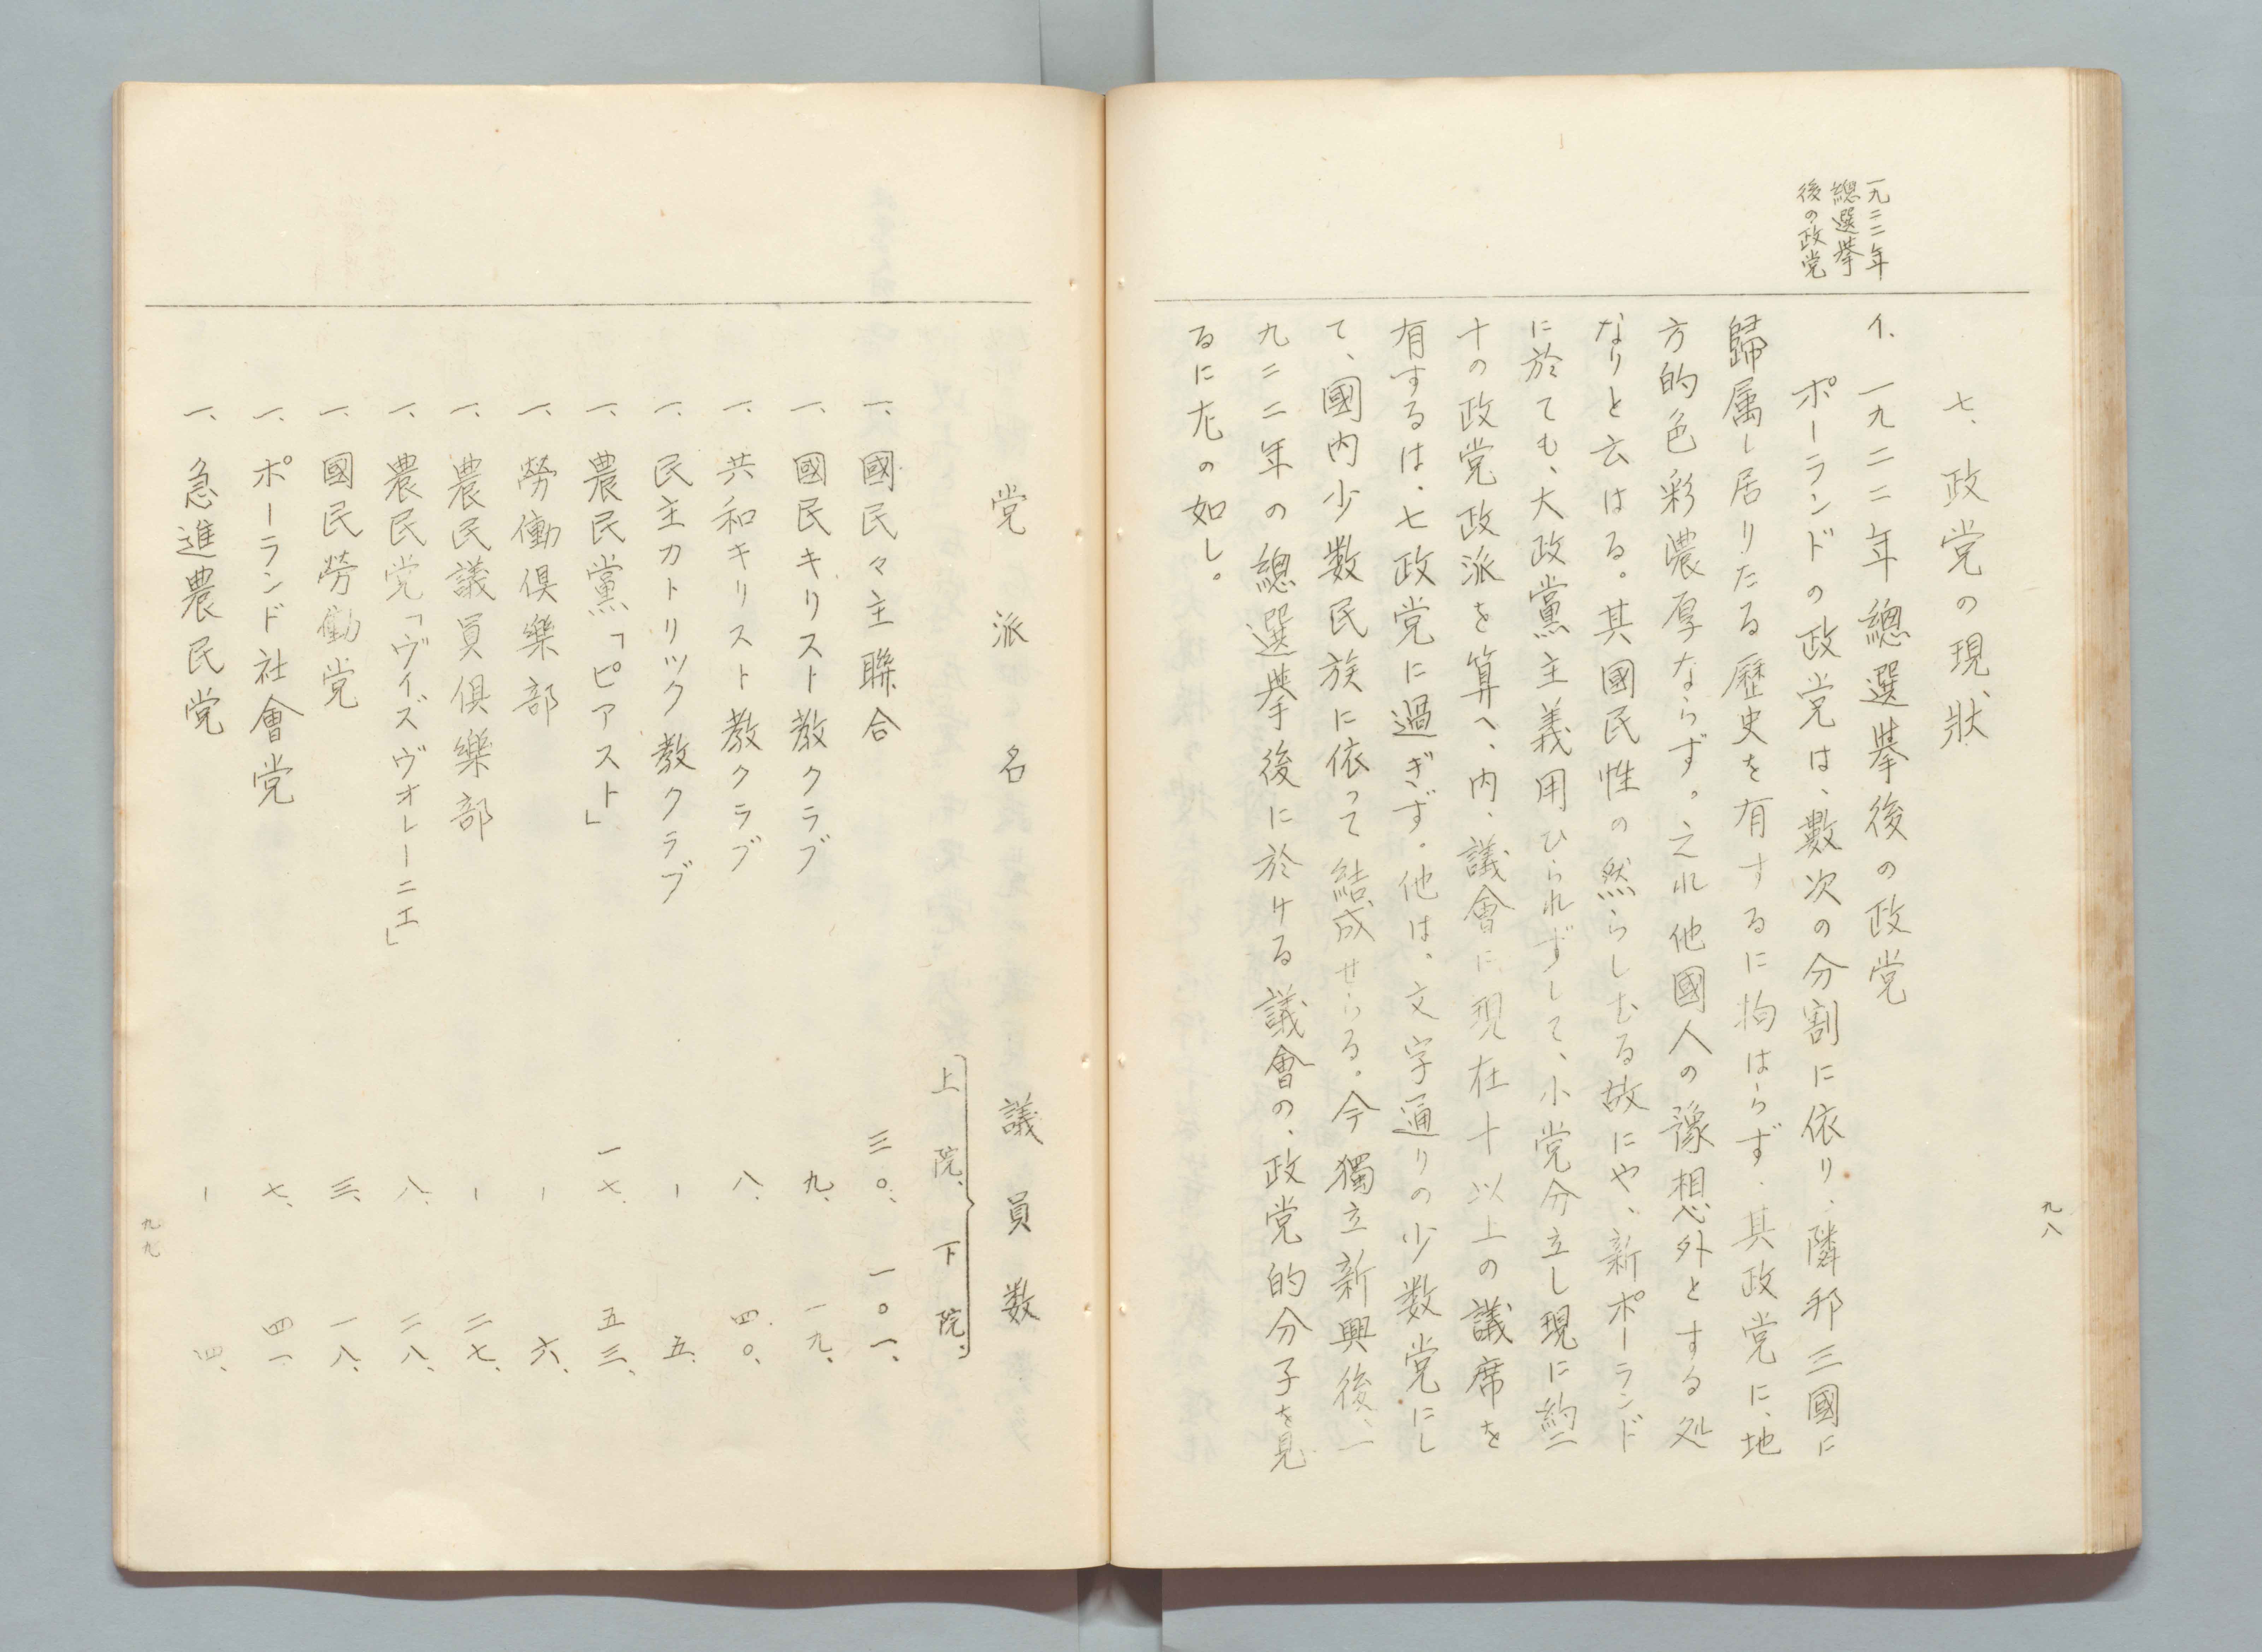 一九二二年
總選挙
後の政党
九八
七、政党の現狀
イ、一九二二年總選挙後の政党
ポーランドの政党は、數次の分割に依り、隣邦三國に
歸属し居りたる歷史を有するに拘はらず、其政党に、地
方的色彩濃厚ならず。之れ他國人の豫想外とする処
なりと云はる。其國民性の然らしむる故にや、新ポーランド
に於ても、大政黨主義用ひられずして、小党分立し現に約二
十の政党政派を算へ、内、議會に現在十以上の議席を
有するは、七政党に過ぎず。他は、文字通りの少数党にし
て、國内少数民族に依って結成せらる。今獨立新興後、一
九二二年の總選挙後に於ける議會の、政党的分子を見
るに左の如し。
党派名 議員数
上院、下院、
一、國民々主聯合 三〇、 一〇一、
一、國民キリスト教クラブ 九、 一九、
一、共和キリスト教クラブ 八、 四〇、
一、民主カトリック教クラブ ー 五、
一、農民黨「ピアスト」 一七、 五三、
一、勞働倶樂部 ー 六、
一、農民議員倶樂部 ー 二七、
一、農民党「ヴイズヴォレーニエ」 八、 二八、
一、國民勞働党 三、 一八、
一、ポーランド社會党 七、 四一
一、急進農民党 ー 四、
九九